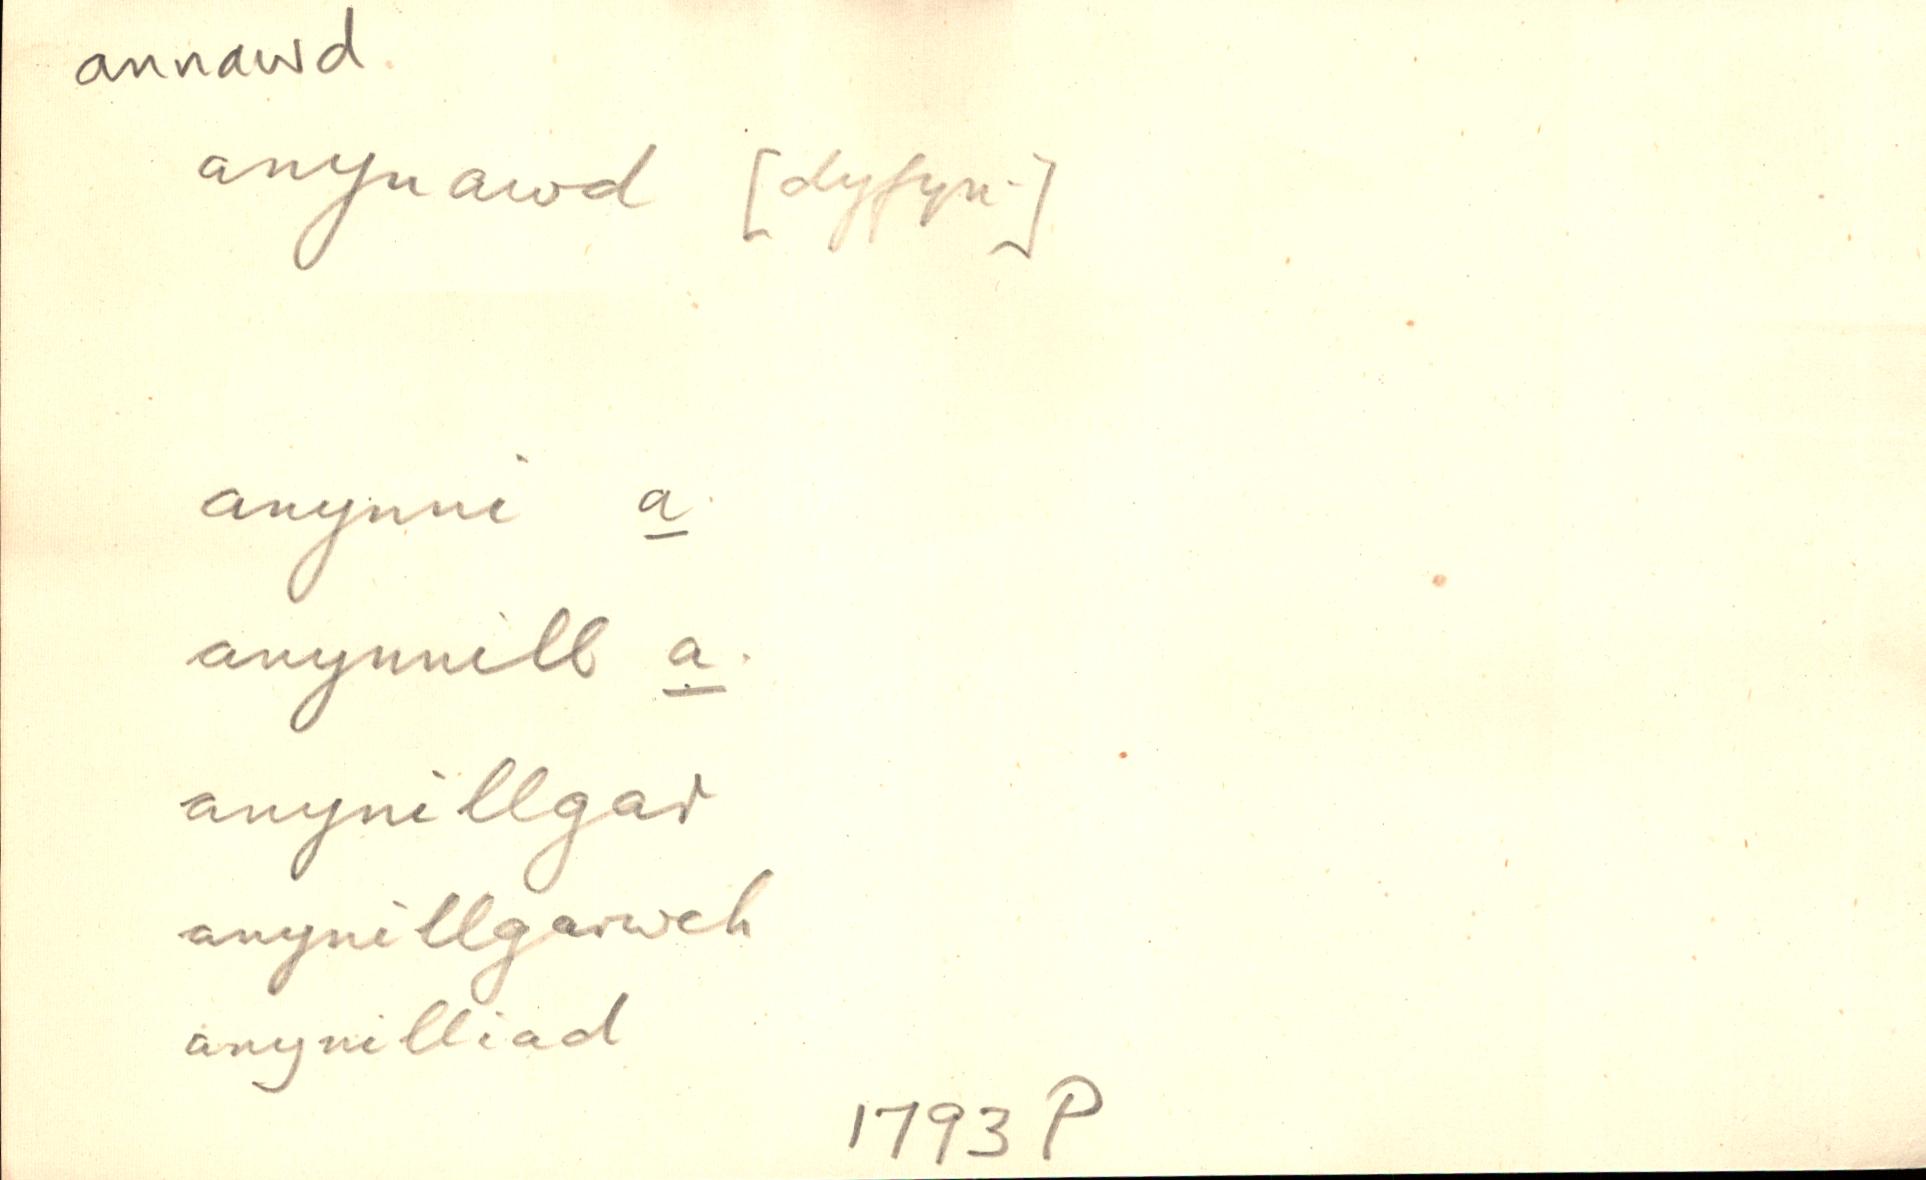 annawd
anynawd [dyfyn.]
anynni a.
anynnill a.
anynillgar
anynillgarwch
anynilliad
1793 P